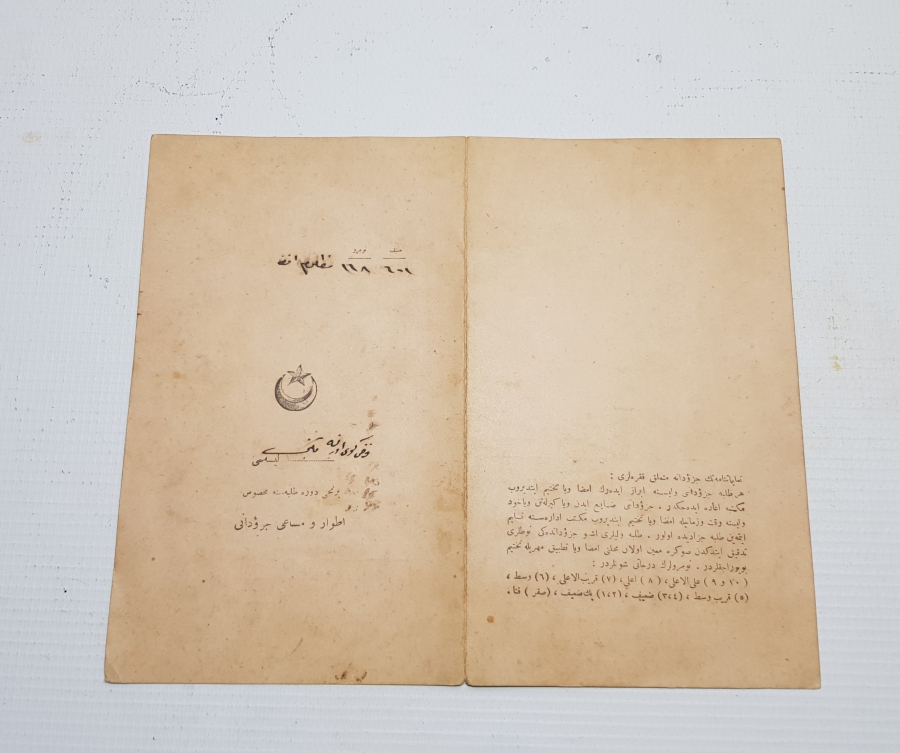 صنف نومرو
٦٠١ ١٦٨ مظلوم
لیسه‌سی
برنجی دوره طلبه‌سنه مخصوص
اطوار و مساعی جزؤدانی
تعلیماتنامه‌نك جزؤدانه متعلق فقره‌لری :
هر طلبه جزؤدانی ولیسنه ابراز ایده‌رك امضا ویا تختیم ایتدیروب
مکتبه اعاده ایده‌جکدر . جزؤدانی ضایع ایدن ویا کیرله‌تن ویاخود
ولیسنه وقت وزمانیله امضا ویا تختیم ایتدیروب مکتب اداره‌سنه تسلیم
ایتمه‌ین طلبه جزادیده اولور . طلبه ولیلری اشو جزؤدانده‌کی نوطلری
تدقیق ایتدکدن صوکره معین اولان محلنی امضا ویا تطبیق مهریله تختیم
بویوراجقلردر . نومرولرك درجاتی شونلردر :
( ١٠ و ٩ ) علی الاعلی ، ( ٨ ) اعلی ، (٧) قریب الاعلی ، (٦) وسط ،
(٥) قریب وسط ، (٣،٤) ضعیف ، (١،٢) پك ضعیف ، (صفر) فنا .